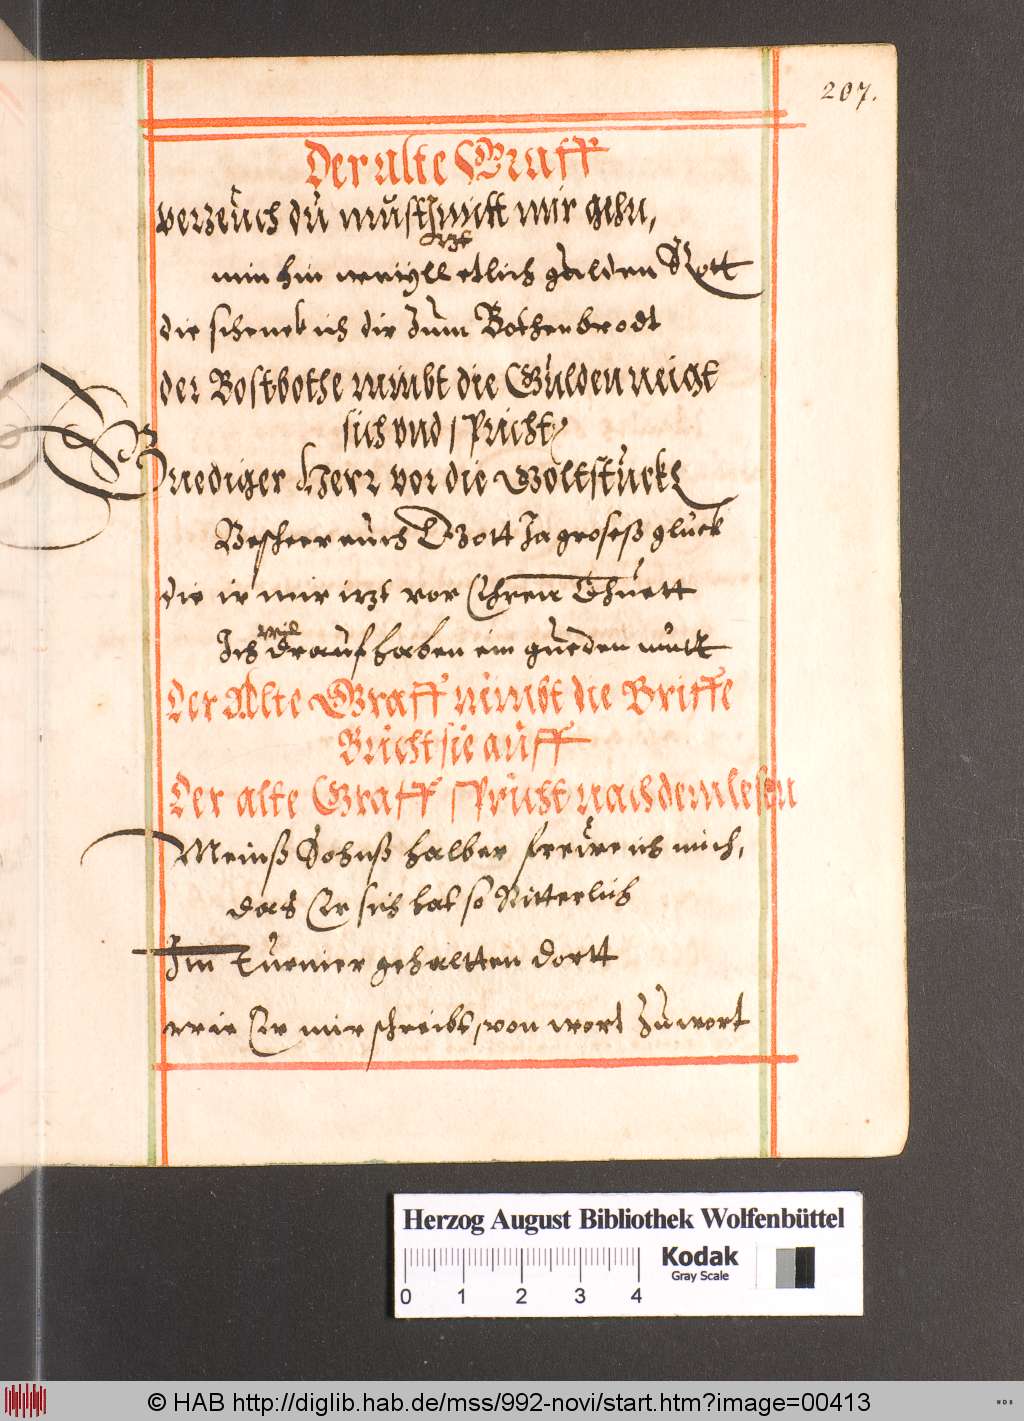 207.
Der alte Graff
verzeuch du must mitt mir gehn,
itzt
nim hin weryll etlich gulden Rott
die schenck ich dir zum Bothenbrodt
der Bostbothe nimbt die Gulden neigt
sich vnd spricht
Gnediger Herr vor die Goltstuck
Bescheer euch Gott Ja groseß gluck
die ir mir itzt vor Ehren Thuett
will
Ich drauf haben ein gueden mutt
Der Alte Graff nimbt die Briffe
Bricht sie auff
Der alte Graff spricht nach dem lesen
Meinß Sohnß halber freiwe ich mich,
das Er sich hat so Ritterlich
Im turnier gehaltten dortt
wie Er mir schreibt, von wort zu wort
Herzog August Bibliothek Wolfenbüttel
Kodak
Gray Scale
0 1 2 3 4
© HAB http://diglib.hab.de/mss/992-novi/start.htm?image=00413